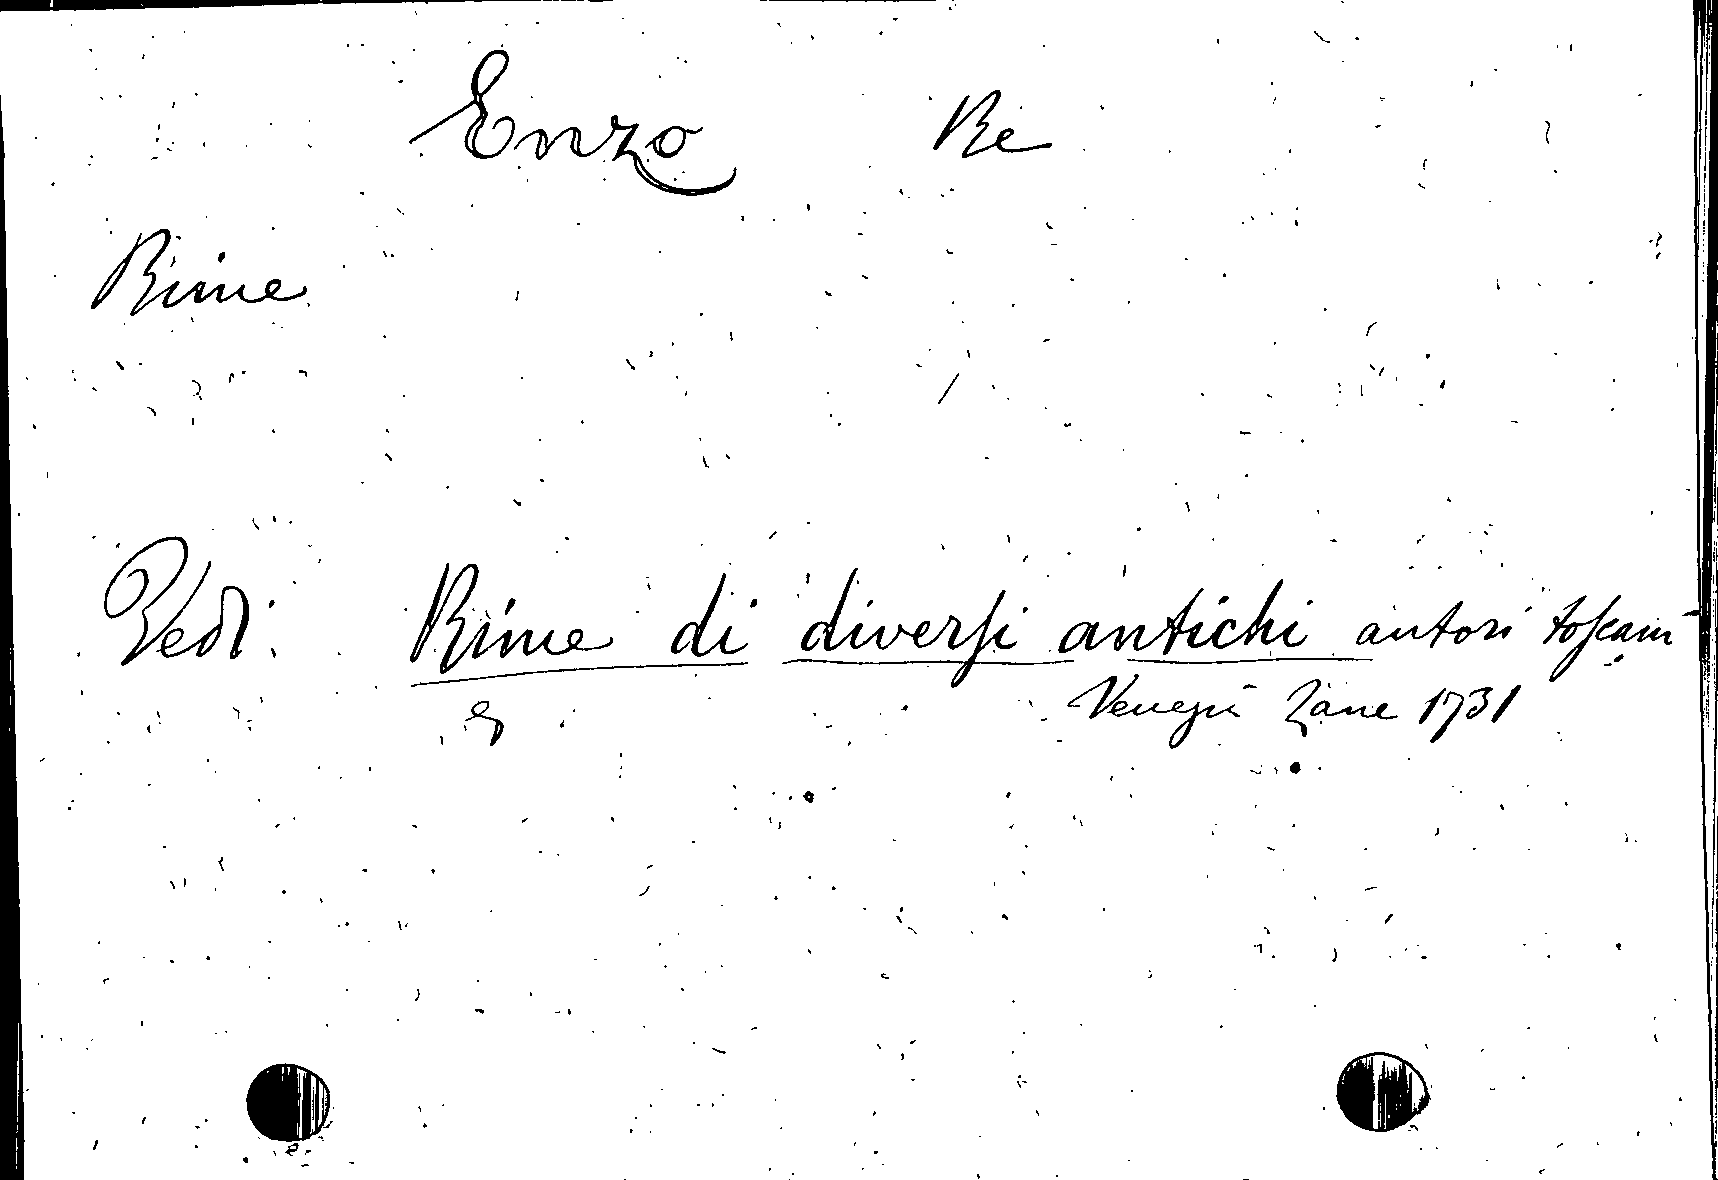 Enzo Re
Rime
Vedi: Rime di diversi antichi autori toscani
Venezia Zane 1731